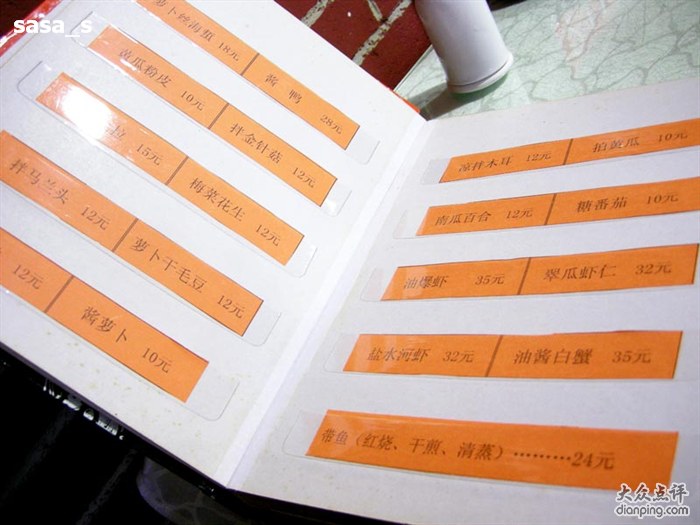 sasa_s
萝卜丝海蜇 18元 酱鸭 28元
黄瓜粉皮 10元 拌金针菇 12元
15元 梅菜花生 12元
拌马兰头 12元 萝卜干毛豆 12元
12元 酱萝卜 10元
凉拌木耳 12元 拍黄瓜 10元
南瓜百合 12元 糖番茄 10元
油爆虾 35元 翠瓜虾仁 32元
盐水河虾 32元 油酱白蟹 35元
带鱼（红烧、干煎、清蒸）………24元
大众点评
dianping.com